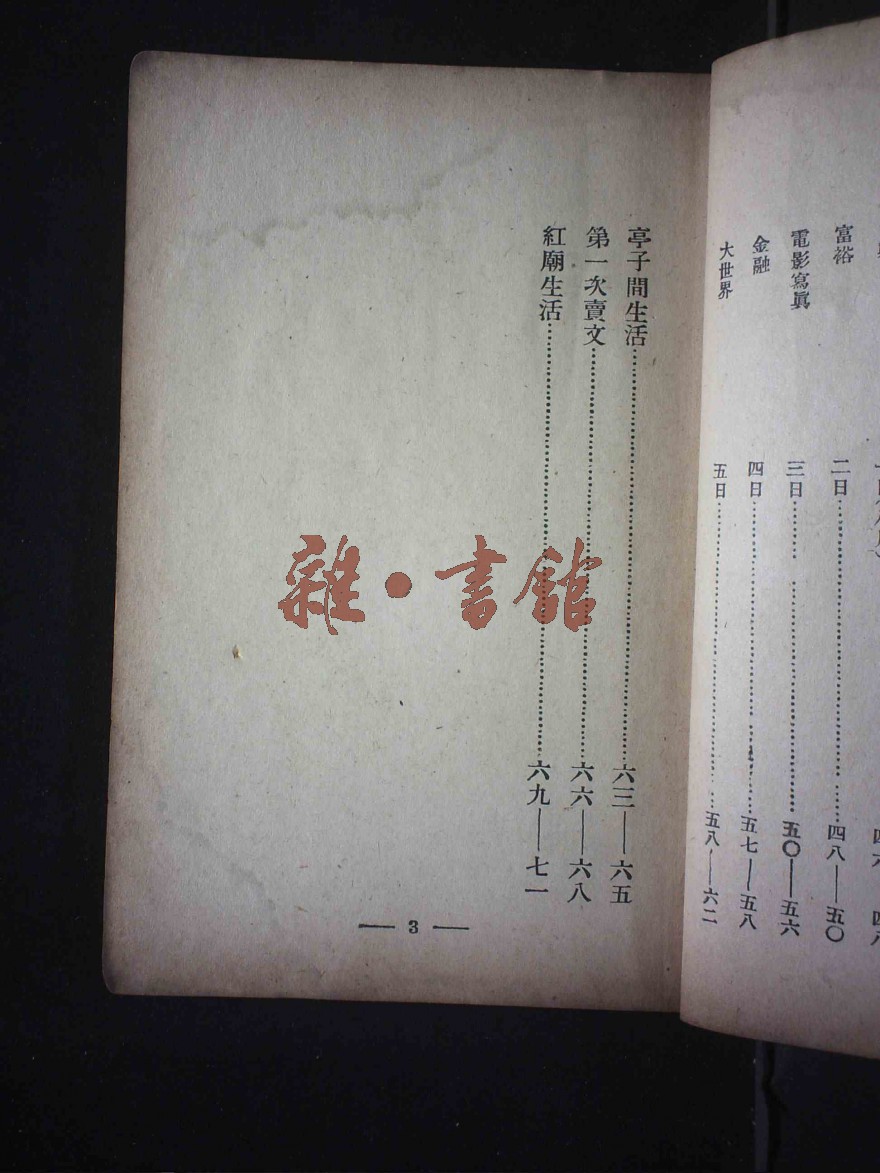 富裕 二日 四八——五〇
電影寫眞 三日 五〇——五六
金融 四日 五七——五八
大世界 五日 五八——六二
亭子間生活 六三——六五
第一次賣文 六六——六八
紅廟生活 六九——七一
— 3 —
雜·書館